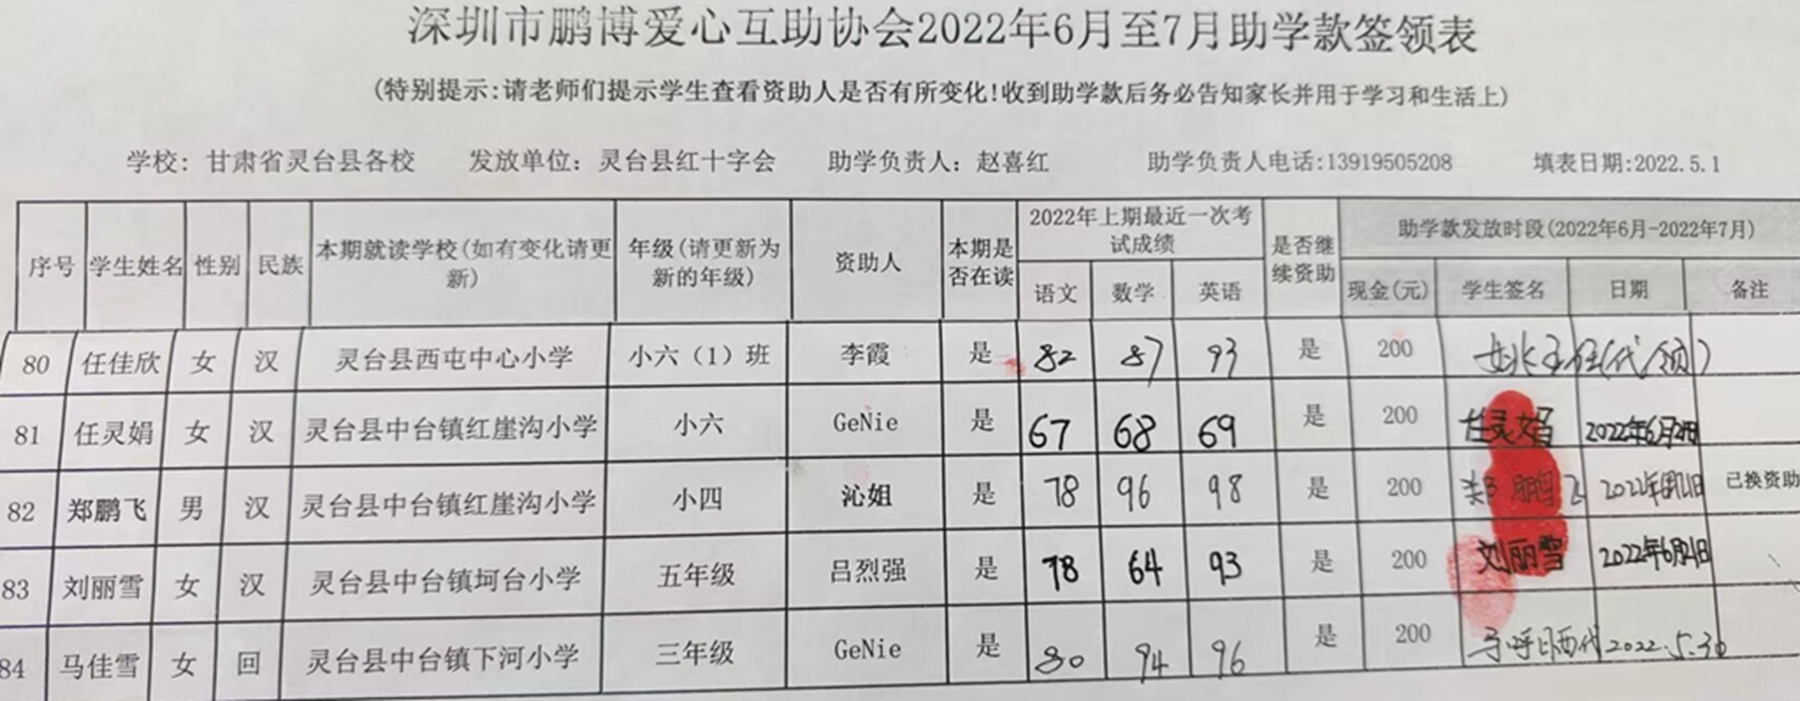 深圳市鹏博爱心互助协会2022年6月至7月助学款签领表
(特别提示:请老师们提示学生查看资助人是否有所变化!收到助学款后务必告知家长并用于学习和生活上)
学校: 甘肃省灵台县各校 发放单位: 灵台县红十字会 助学负责人: 赵喜红 助学负责人电话:13919505208 填表日期:2022.5.1
序号 学生姓名 性别 民族 本期就读学校(如有变化请更新) 年级(请更新为新的年级) 资助人 本期是否在读 2022年上期最近一次考试成绩 是否继续资助 助学款发放时段(2022年6月-2022年7月)
语文 数学 英语 现金(元) 学生签名 日期 备注
80 任佳欣 女 汉 灵台县西屯中心小学 小六（1）班 李霞 是 82 87 93 是 200 (代领)
81 任灵娟 女 汉 灵台县中台镇红崖沟小学 小六 GeNie 是 67 68 69 是 200 任灵娟 2022年6月21日
82 郑鹏飞 男 汉 灵台县中台镇红崖沟小学 小四 沁姐 是 78 96 98 是 200 郑鹏飞 2022年6月21日 已换资助
83 刘丽雪 女 汉 灵台县中台镇坷台小学 五年级 吕烈强 是 78 64 93 是 200 刘丽雪 2022年6月21日
84 马佳雪 女 回 灵台县中台镇下河小学 三年级 GeNie 是 80 94 96 是 200 2022.5.30